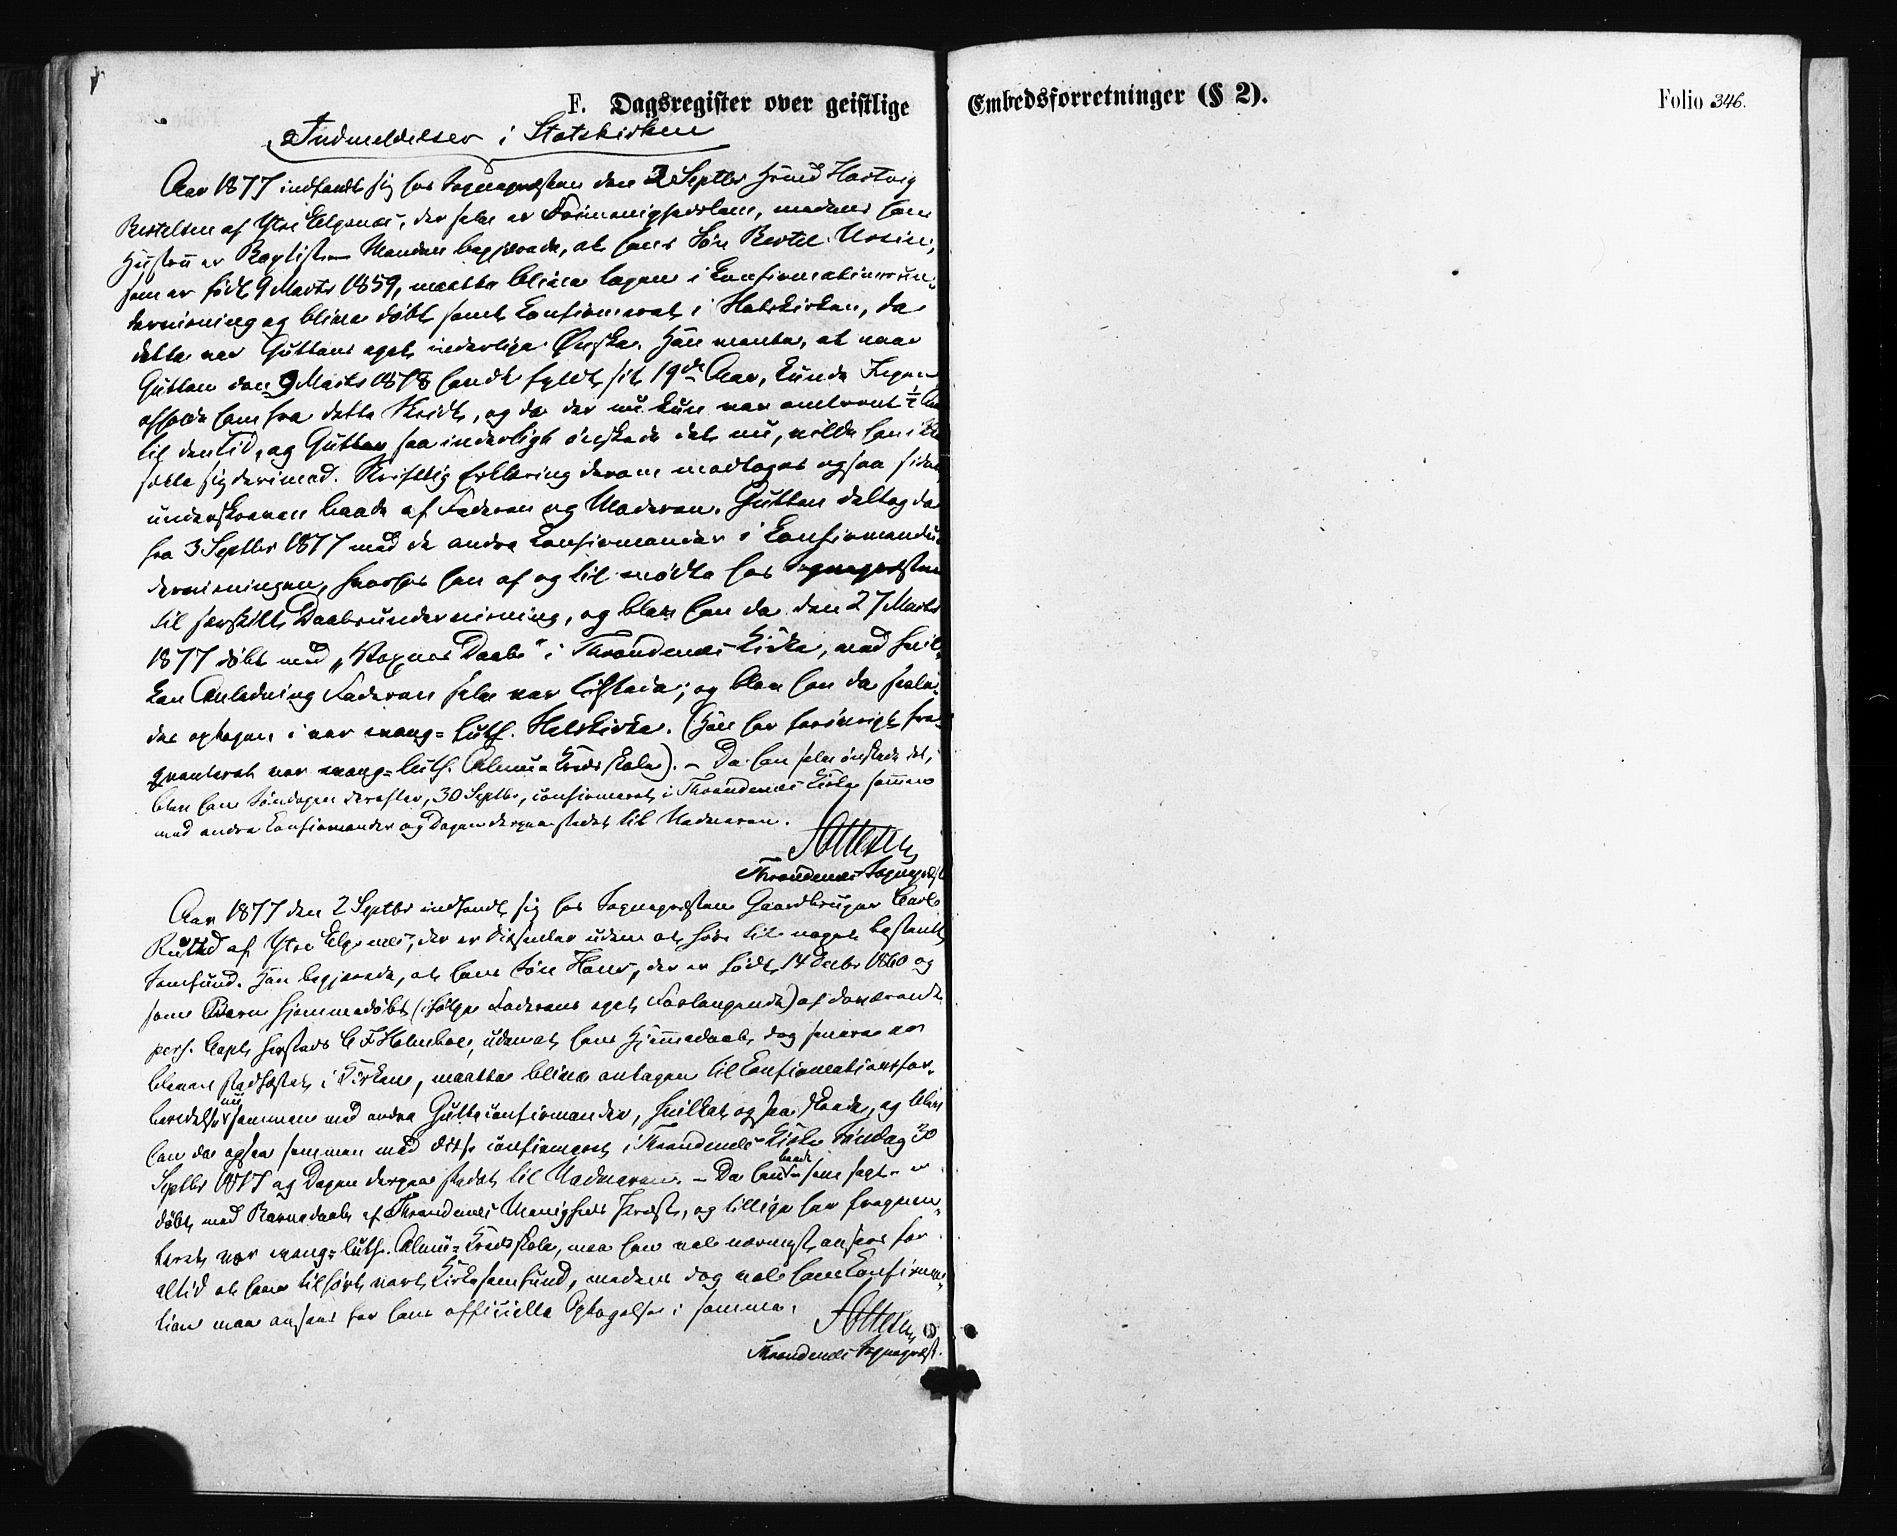 F. Dagsregister over geistlige Embedsforretninger (§ 2). Folio 346.
Indmeldelser i Statskirken
Aar 1877 indfandt sig hos Sognepræsten den 2 Septbr Hartvig
Bertelsen af Ytre Elgsnæs, der selv er , medens hans
Hustru er Baptist. Manden begjærede, at hans Søn Bertel
som er født 9 Marts 1859, maatte blive tagen i Confirmationsun-
dervisning og blive døbt samt confirmeret i Statskirken, da
dette var Guttens eget inderlige Ønske. Han mente, at naar
Gutten den 9 Marts 1878 havde fyldt sit 19de Aar, kunde Ingen
afholde ham fra dette Skridt, og da der nu kun var omtrent ½ Aar
til den Tid, og Gutten saa inderligt ønskede det nu, vilde han ikke
sætte sig derimod. Skriftlig Erklæring derom modtoges ogsaa siden,
underskreven baade af Faderen og Moderen. Gutten deltog da
fra 3 Septbr 1877 med de andre Confirmander i Confirmandun-
dervisningen, hvorhos han af og til mødte hos Sognepræsten
til særskilt Daabsundervisning, og blev han da den 27
1877 døbt med "Voxnes Daab" i Throndenæs Kirke, med hvil-
ken Anledning Faderen selv var tilstede; og blev han da saale-
des optagen i vor evang=luth. Statskirke. (Han har forøvrigt fre-
qventeret vor evang=luth. Almue Kredsskole). – Da han selv ønskede det,
blev han Søndagen derefter, 30 Septbr, confirmeret i Throndenæs Kirke sammen
med andre Confirmander og Dagen derpaa stedet til Nadveren.
Throndenæs Sognepræst
Aar 1877 den 2 Septbr indfandt sig hos Sognepræsten Gaardbruger Carl
af Ytre Elgsnæs, der er Dissenter uden at høre til noget bestemt
Samfund. Han begjærede, at hans Søn Hans, der er født 14 Decbr 1860 og
som Barn hjemmedøbt (ifølge Faderens eget Forlangende) af daværende
pers. Capl. Holmboe, uden at hans Hjemmedaab dog senere var
bleven stadfæstet i Kirken, maatte blive antagen til Confirmationsfor-
beredelse nu sammen med andre Gutteconfirmander, hvilket ogsaa skede, og blev
han da ogsaa sammen med disse confirmeret i Throndenæs Kirke Søndag 30
Septbr 1877 og Dagen derpaa stedet til Nadveren. – Da han baade – som sagt – er
døbt med Barnedaab af Throndenæs Menigheds Præst, og tillige har freqven-
teret vor evang=luth. Almu=Kredsskole, maa han vel nærmest ansees for
altid at have tilhørt vort Kirkesamfund, medens dog vel hans Confirma-
tion maa ansees for hans officielle Optagelse i samme.
Throndenæs Sognepræst.